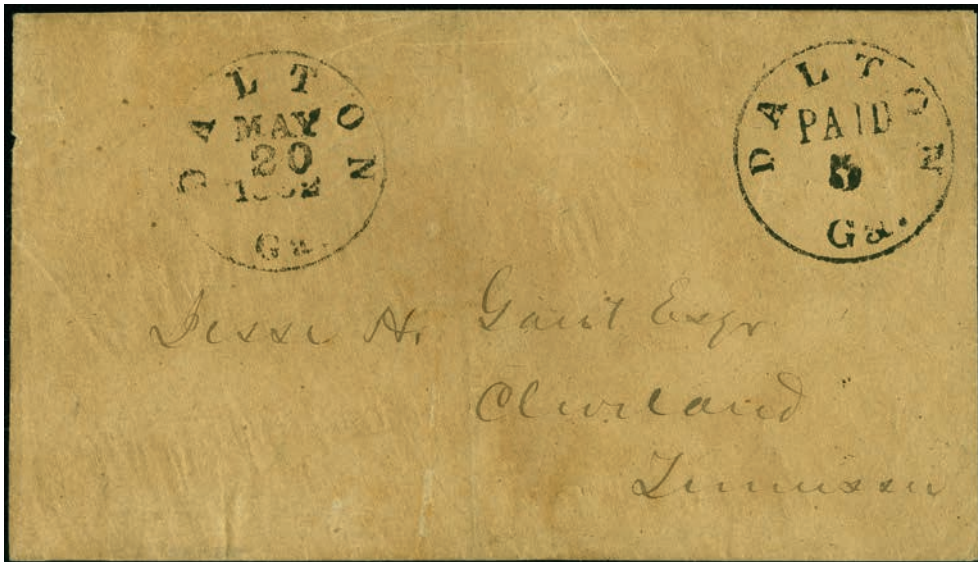 DALTON
MAY
20
1862
Ga.
DALTON
PAID
5
Ga.
Jesse H. Gaut Esqr
Cleveland
Tennessee